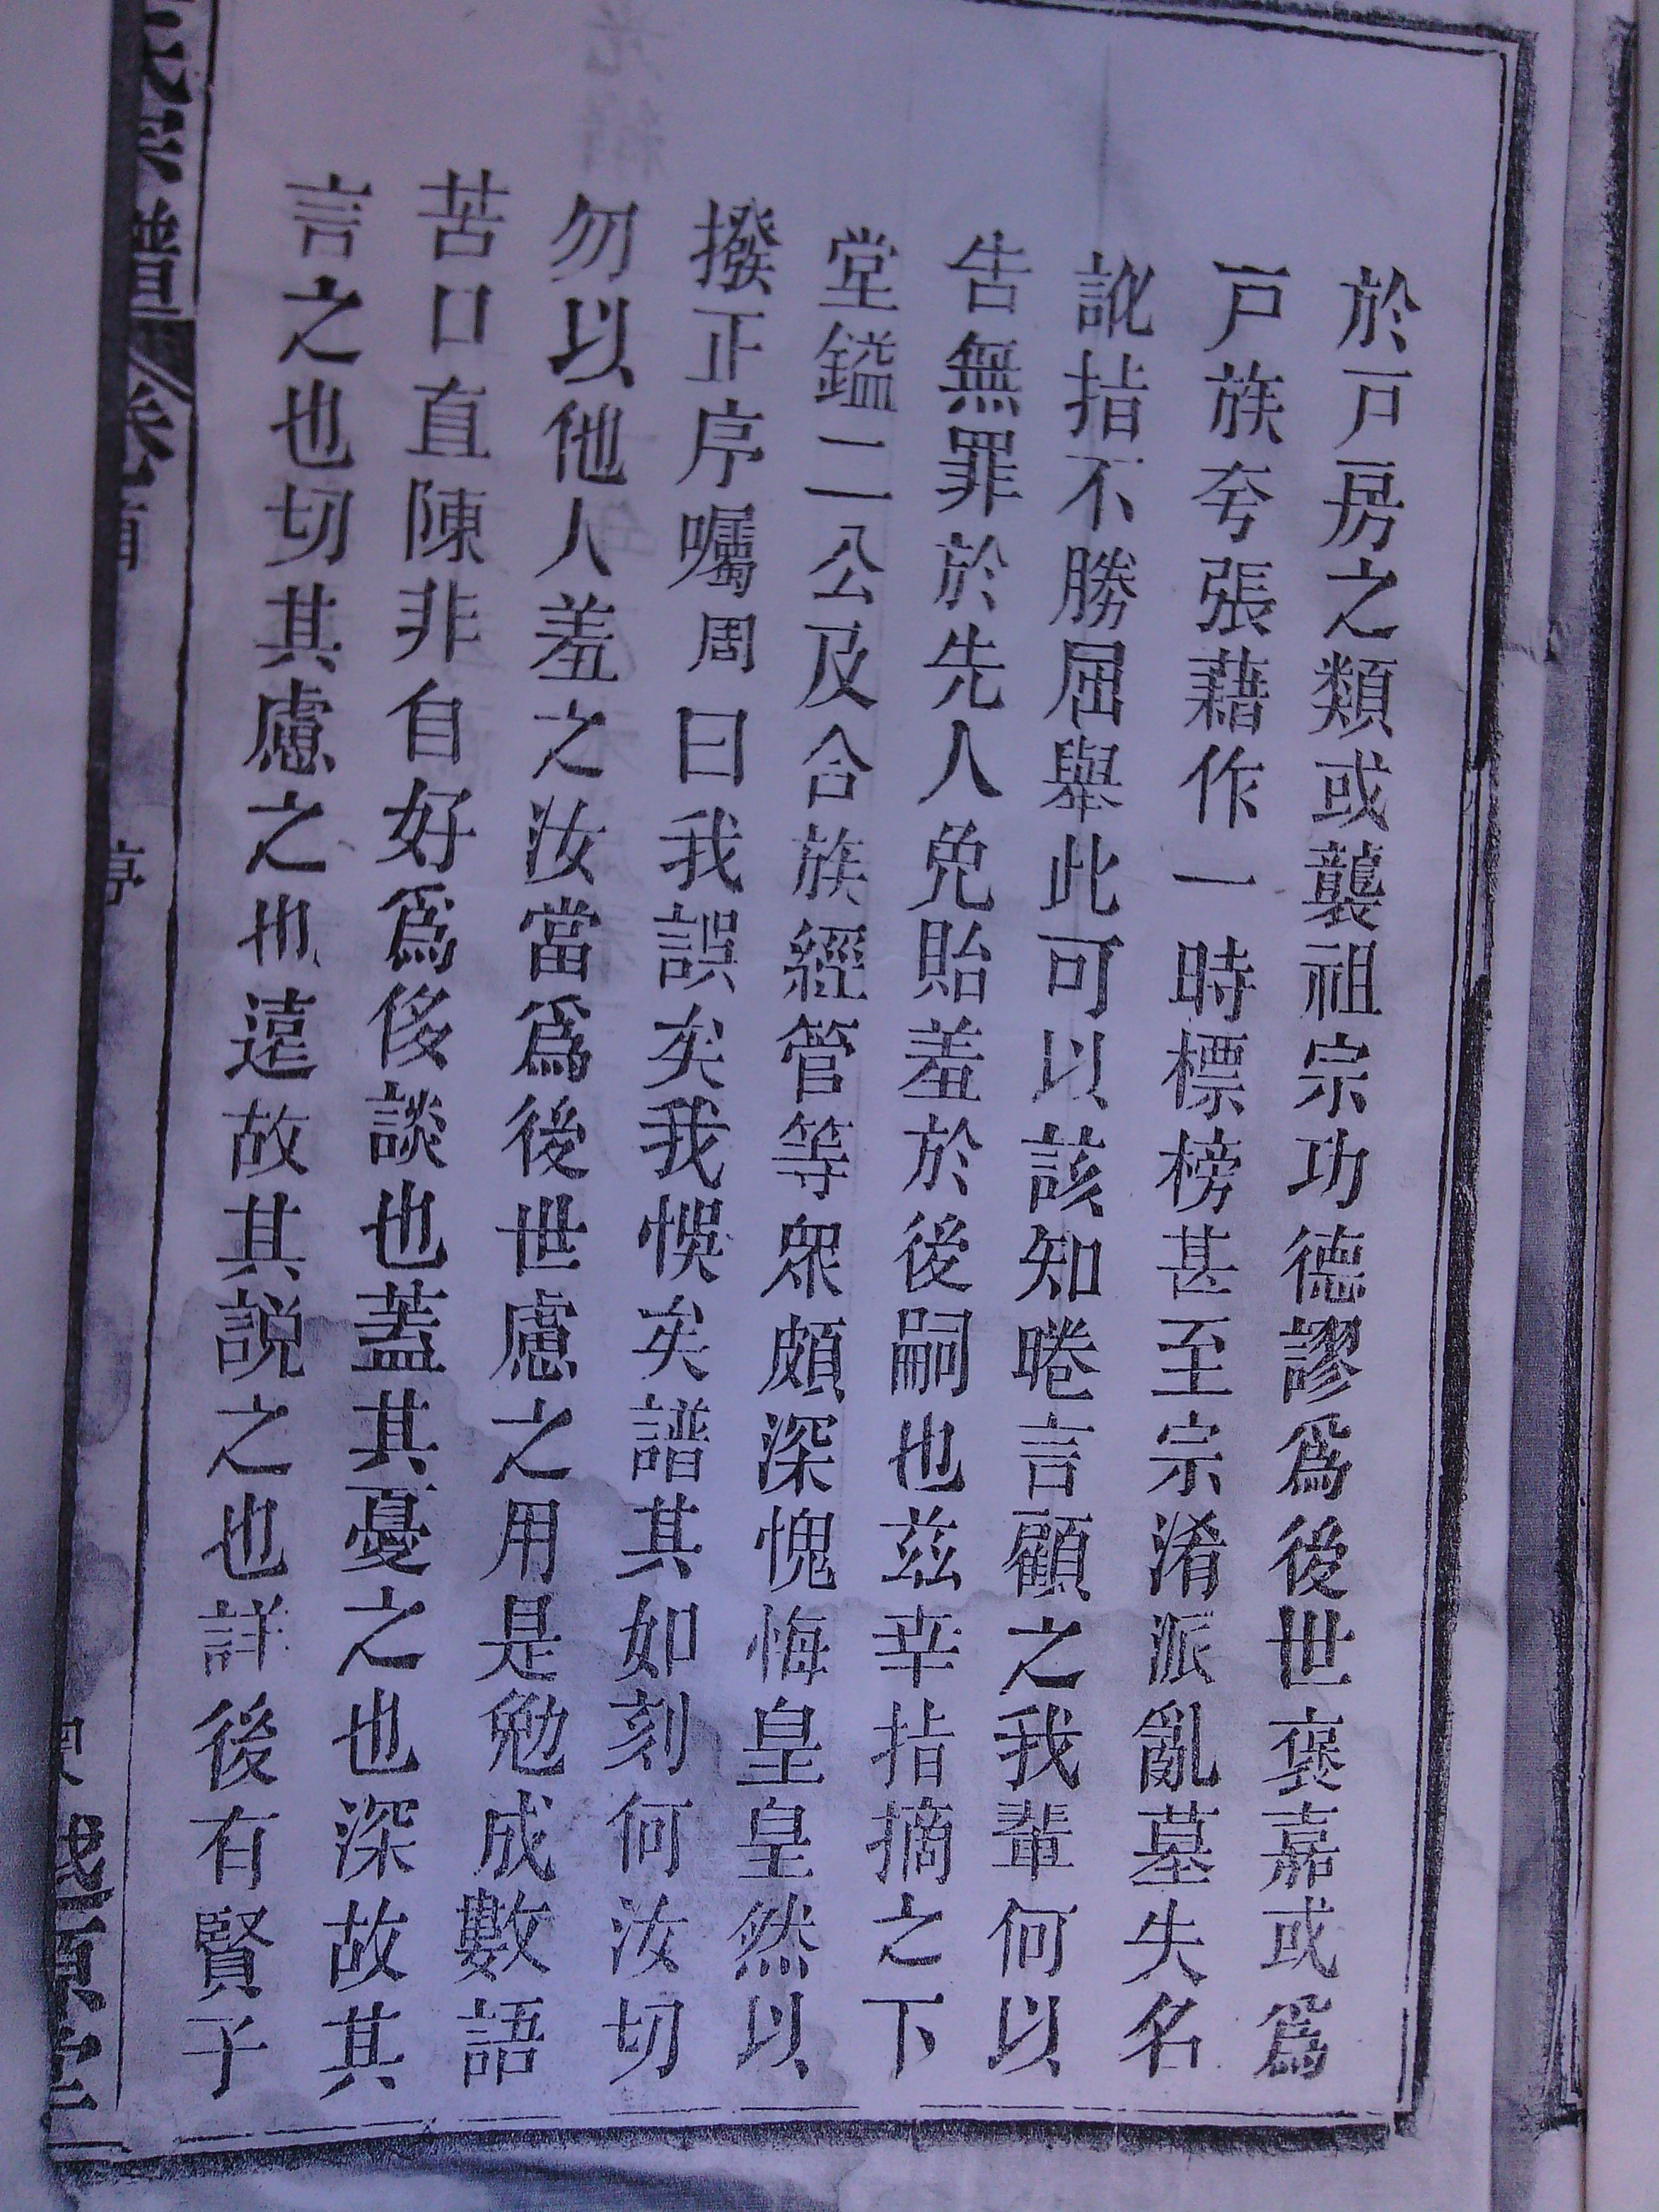 於戸房之類或襲祖宗功德謬爲後世褒嘉或爲
戸族夸張藉作一時標榜甚至宗淆派亂墓失名
訛指不勝屈舉此可以該知睠言顧之我輩何以
告無罪於先人免貽羞於後嗣也茲幸指摘之下
堂鎰二公及合族經管等眾頗深愧悔皇皇然以
撥正序囑周曰我誤矣我悞矣譜其如刻何汝切
勿以他人羞之汝當爲後世慮之用是勉成數語
苦口直陳非自好爲侈談也蓋其憂之也深故其
言之也切其慮之也遠故其説之也詳後有賢子
譜 卷首 序